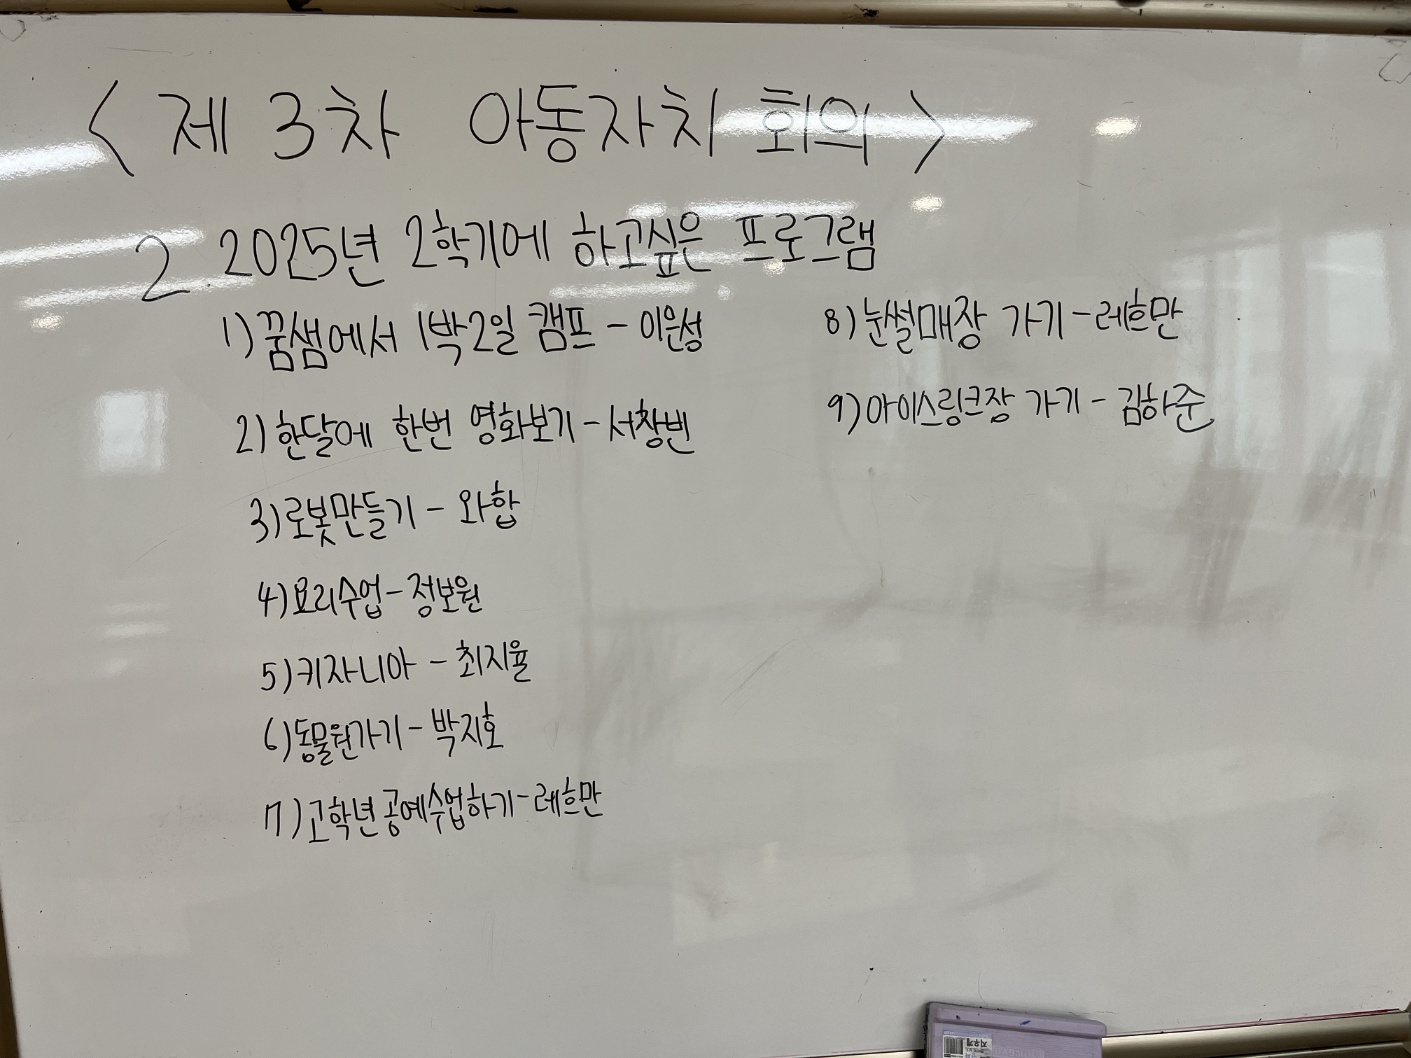 < 제 3차 아동자치 회의 >
2. 2025년 2학기에 하고싶은 프로그램
1) 꿈샘에서 1박2일 캠프 - 이은성
2) 한달에 한번 영화보기 - 서창빈
3) 로봇만들기 - 와합
4) 요리수업 - 정보원
5) 키자니아 - 최지율
6) 동물원가기 - 박지호
7) 고학년 공예수업하기 - 레흐만
8) 눈썰매장 가기 - 레흐만
9) 아이스링크장 가기 - 김하준